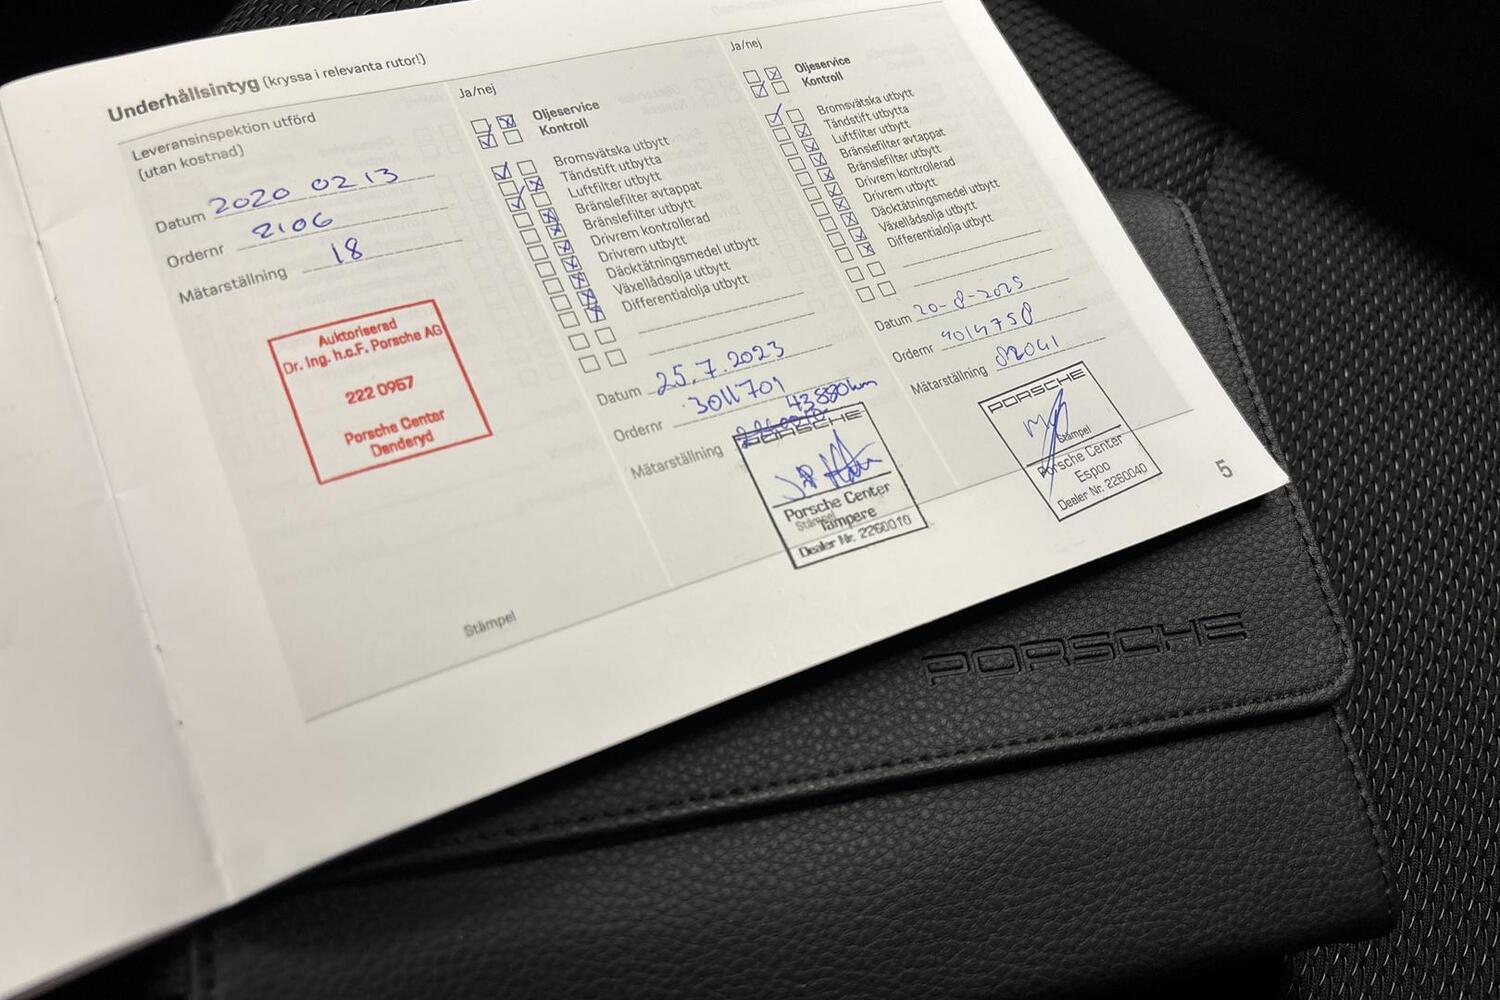 Underhållsintyg (kryssa i relevanta rutor!)
Leveransinspektion utförd
(utan kostnad)
Datum 2020 02 13
Ordernr 2106
Mätarställning 18
Auktoriserad
Dr. Ing. h.c.F. Porsche AG
222 0957
Porsche Center
Danderyd
Stämpel
Ja/nej
Oljeservice
Kontroll
Bromsvätska utbytt
Tändstift utbytta
Luftfilter utbytt
Bränslefilter avtappat
Bränslefilter utbytt
Drivrem kontrollerad
Drivrem utbytt
Däcktätningsmedel utbytt
Växellådsolja utbytt
Differentialolja utbytt
Datum 25.7.2023
Ordernr 3011701
Mätarställning 43880km
PORSCHE
Porsche Center
Stämpel
Tampere
Dealer Nr. 2260010
Ja/nej
Oljeservice
Kontroll
Bromsvätska utbytt
Tändstift utbytta
Luftfilter utbytt
Bränslefilter avtappat
Bränslefilter utbytt
Drivrem kontrollerad
Drivrem utbytt
Däcktätningsmedel utbytt
Växellådsolja utbytt
Differentialolja utbytt
Datum 20-8-2025
Ordernr 4014758
Mätarställning 82041
PORSCHE
Stämpel
Porsche Center
Espoo
Dealer Nr. 2260040
5
PORSCHE